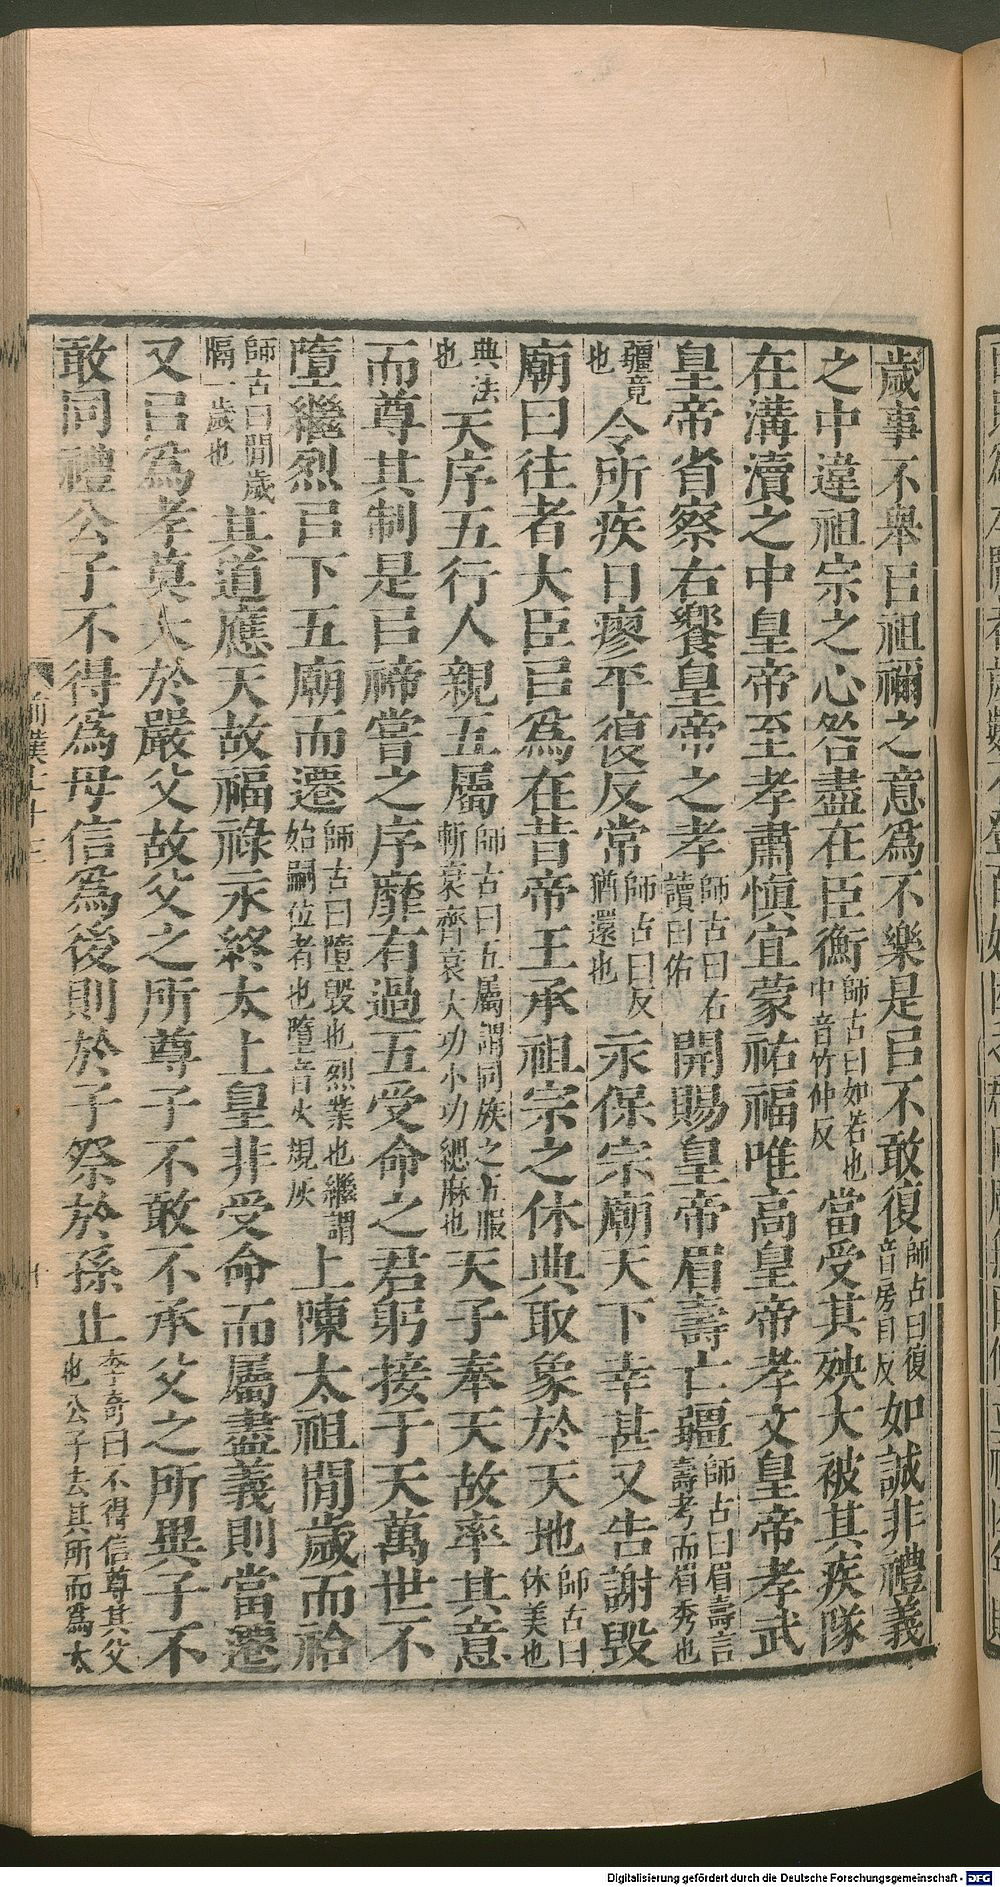 歲事不舉㠯祖禰之意爲不樂是㠯不敢復師古曰復音房目反如誠非禮義
之中違祖宗之心咎盡在臣衡師古曰如若也中音竹仲反當受其殃大被其疾隊
在溝瀆之中皇帝至孝肅慎宜蒙祐福唯高皇帝孝文皇帝孝武
皇帝省察右饗皇帝之孝師古曰右讀曰佑開賜皇帝眉壽亡疆師古曰眉壽言壽考而眉秀也
疆竟也令所疾日瘳平復反常師古曰反猶還也永保宗廟天下幸甚又告謝毀
廟曰往者大臣㠯爲在昔帝王承祖宗之休典取象於天地師古曰休美也
典法也天序五行人親五屬師古曰五屬謂同族之五服斬衰齊衰大功小功緦麻也天子奉天故率其意
而尊其制是㠯禘嘗之序靡有過五受命之君躬接于天萬世不
墮繼烈㠯下五廟而遷師古曰墮毀也烈業也繼謂始嗣位者也墮音火規反上陳太祖閒歲而祫
師古曰閒歲隔一歲也其道應天故福祿永終太上皇非受命而屬盡義則當遷
又㠯爲孝莫大於嚴父故父之所尊子不敢不承父之所異子不
敢同禮公子不得爲母信爲後則於子祭於孫止李奇曰不得信尊其父也公子去其所而爲太
前漢七十三
十
Digitalisierung gefördert durch die Deutsche Forschungsgemeinschaft - DFG